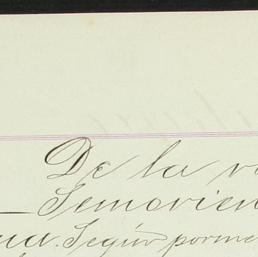 De la v
Semovien
ua. Según porme